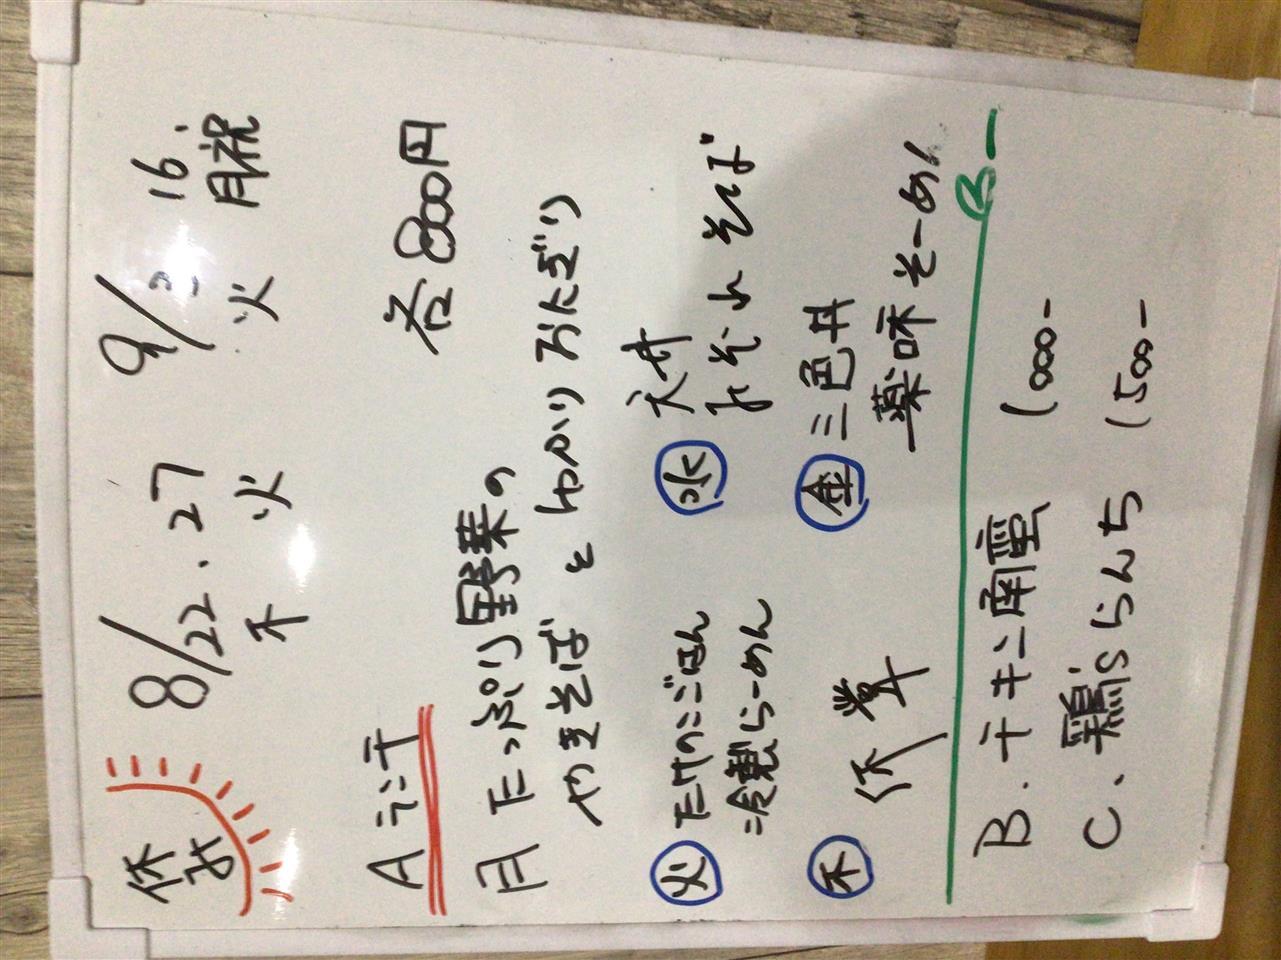 休み
8/22.27 9/3 16.
木 火 火 月祝
Aランチ 各800円
月 たっぷり野菜の
やきそば と ゆかりおにぎり
火 たけのこごはん 水 天丼
冷製らーめん おろしそば
木 休業 金 三色丼
薬味そーめん
B.チキン南蛮 1000-
C.鶏'sらんち 1500-